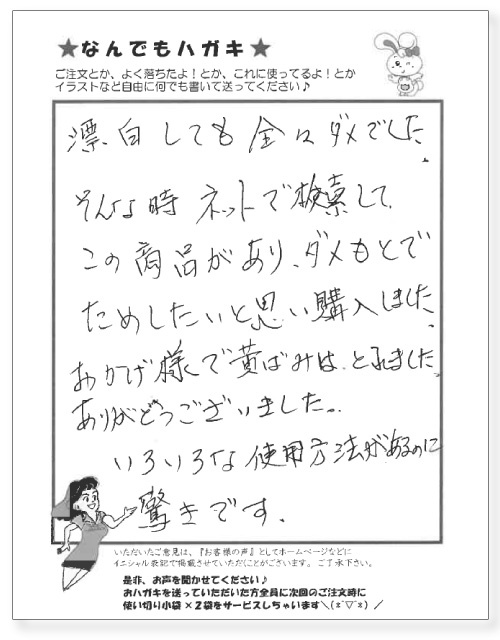 ★なんでもハガキ★
ご注文とか、よく落ちたよ!とか、これに使ってるよ!とか
イラストなど自由に何でも書いて送ってください♪
漂白しても全々ダメでした。
そんな時 ネットで検索して、
この商品があり、ダメもとで
ためしたいと思い購入しました。
おかげ様で黄ばみは、とれました。
ありがとうございました。
いろいろな使用方法があるのに
驚きです。
いただいたご意見は、『お客様の声』としてホームページなどに
イニシャル表記で掲載させていただくことがございます。ご了承下さい。
是非、お声を聞かせてください♪
おハガキを送っていただいた方全員に次回のご注文時に
使い切り小袋×2袋をサービスしちゃいます＼(*¨▽¨*)／